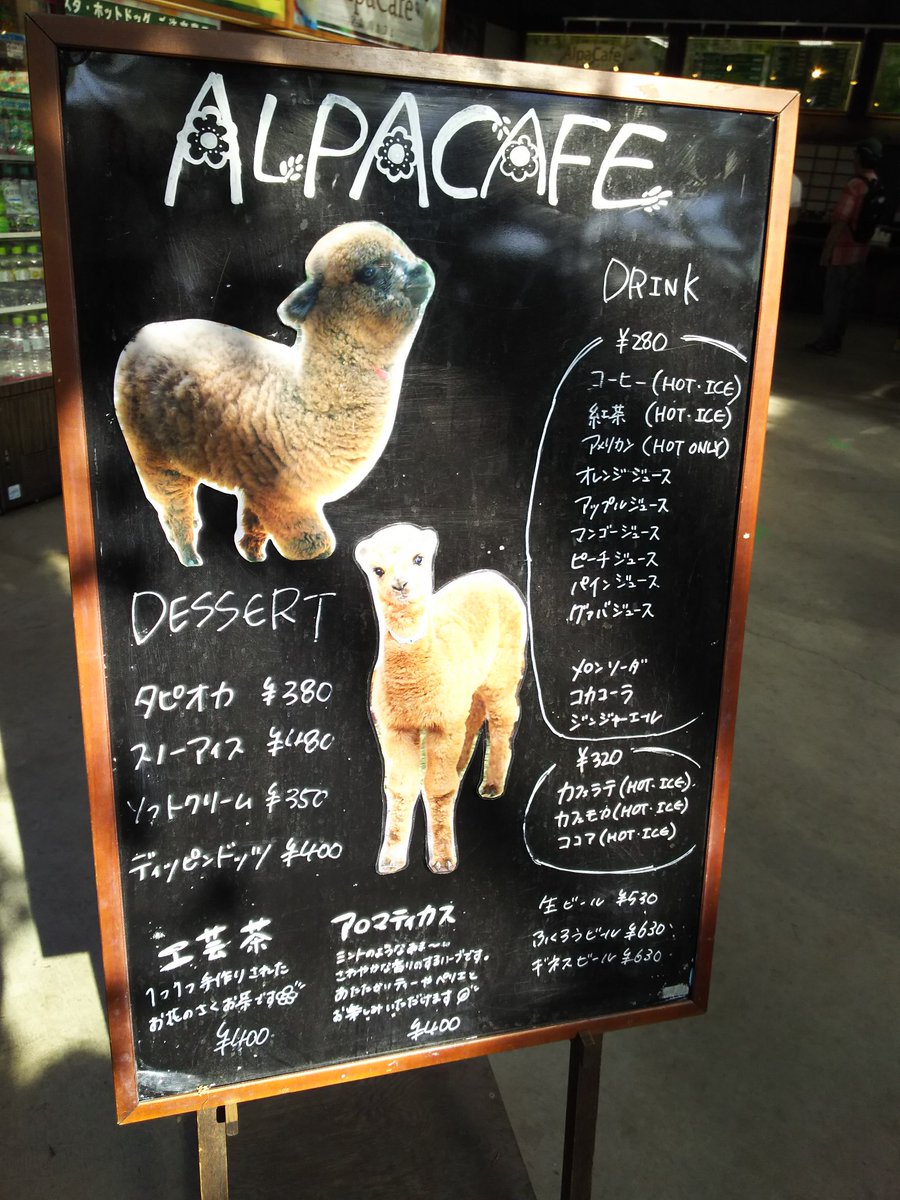 スタ・ホットドッグ
AlpaCafe
AlpaCafe
ALPACAFE
DRINK
¥280
コーヒー (HOT・ICE)
紅茶 (HOT・ICE)
アメリカン (HOT ONLY)
オレンジジュース
アップルジュース
マンゴージュース
ピーチジュース
パインジュース
グァバジュース
メロンソーダ
コカコーラ
ジンジャーエール
¥320
カフェラテ (HOT・ICE)
カフェモカ (HOT・ICE)
ココア (HOT・ICE)
生ビール ¥530
ふくろうビール ¥630
ギネスビール ¥630
DESSERT
タピオカ ¥380
スノーアイス ¥480
ソフトクリーム ¥350
ディッピンドッツ ¥400
工芸茶
1つ1つ手作りされた
お花のさくお茶です
¥400
アロマティカス
ミントのようなあま〜い
さわやかな香りのするハーブです。
あたたかいティーやペリエと
お楽しみいただけます
¥400